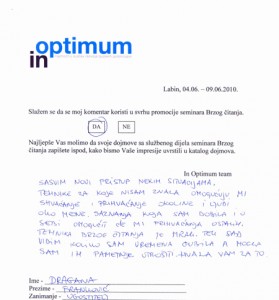 optimum
in
Labin, 04.06. – 09.06.2010.
Slažem se da se moj komentar koristi u svrhu promocije seminara Brzog čitanja.
DA NE
Najljepše Vas molimo da svoje dojmove sa službenog dijela seminara Brzog
čitanja zapišete ispod, kako bismo Vaše impresije uvrstili u katalog dojmova.
In Optimum team
SASVIM NOVI PRISTUP NEKIM SITUACIJAMA.
TEHNIKE ZA KOJE NISAM ZNALA OMOGUĆUJU MI
SHVAĆANJE I PRIHVAĆANJE OKOLINE I LJUDI
OKO MENE. SAZNANJA KOJA SAM DOBILA U
OMOGUĆIT ĆE MI PRIHVAĆANJE OSTALIH.
TEHNIKA BRZOG ČITANJA JE TEK SAD
VIDIM KOLIKO SAM VREMENA GUBILA A MOGLA
SAM IH PAMETNIJE UTROŠITI. HVALA VAM ZA TO
Ime - DRAGANA
Prezime - FRANKOVIĆ
Zanimanje - UGOSTITELJ